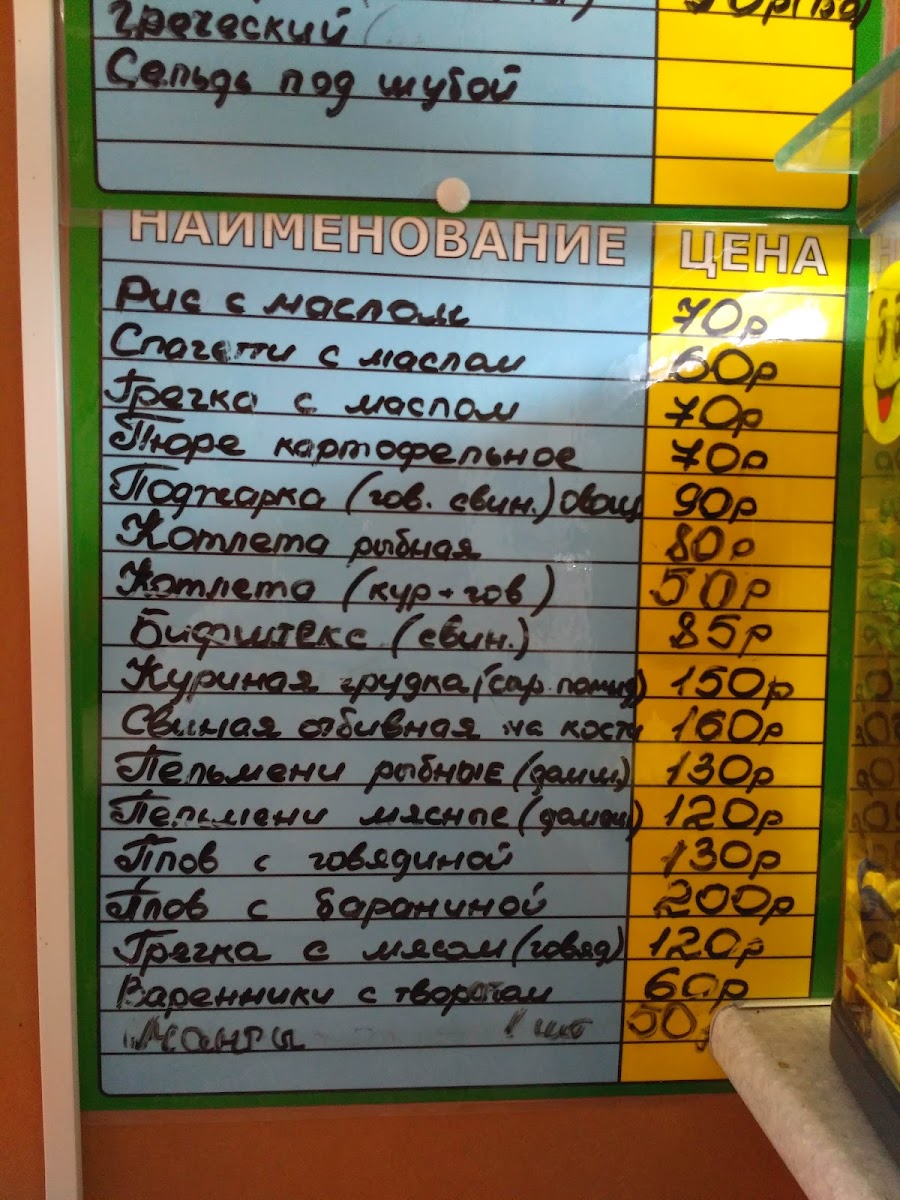 греческий
Сельдь под шубой
НАИМЕНОВАНИЕ ЦЕНА
Рис с маслом 70р
Спагетти с маслом 60р
Гречка с маслом 70р
Пюре картофельное 70р
Поджарка (гов. свин.) овощ 90р
Котлета рыбная 80р
Котлета (кур+гов) 50р
Бифштекс (свин.) 85р
Куриная грудка (сыр. помид) 150р
Свиная отбивная на кости 160р
Пельмени рыбные (домаш.) 130р
Пельмени мясные (домаш) 120р
Плов с говядиной 130р
Плов с бараниной 200р
Гречка с мясом (говяд) 120р
Варенники с творогом 60р
Манты 1 шт 50р